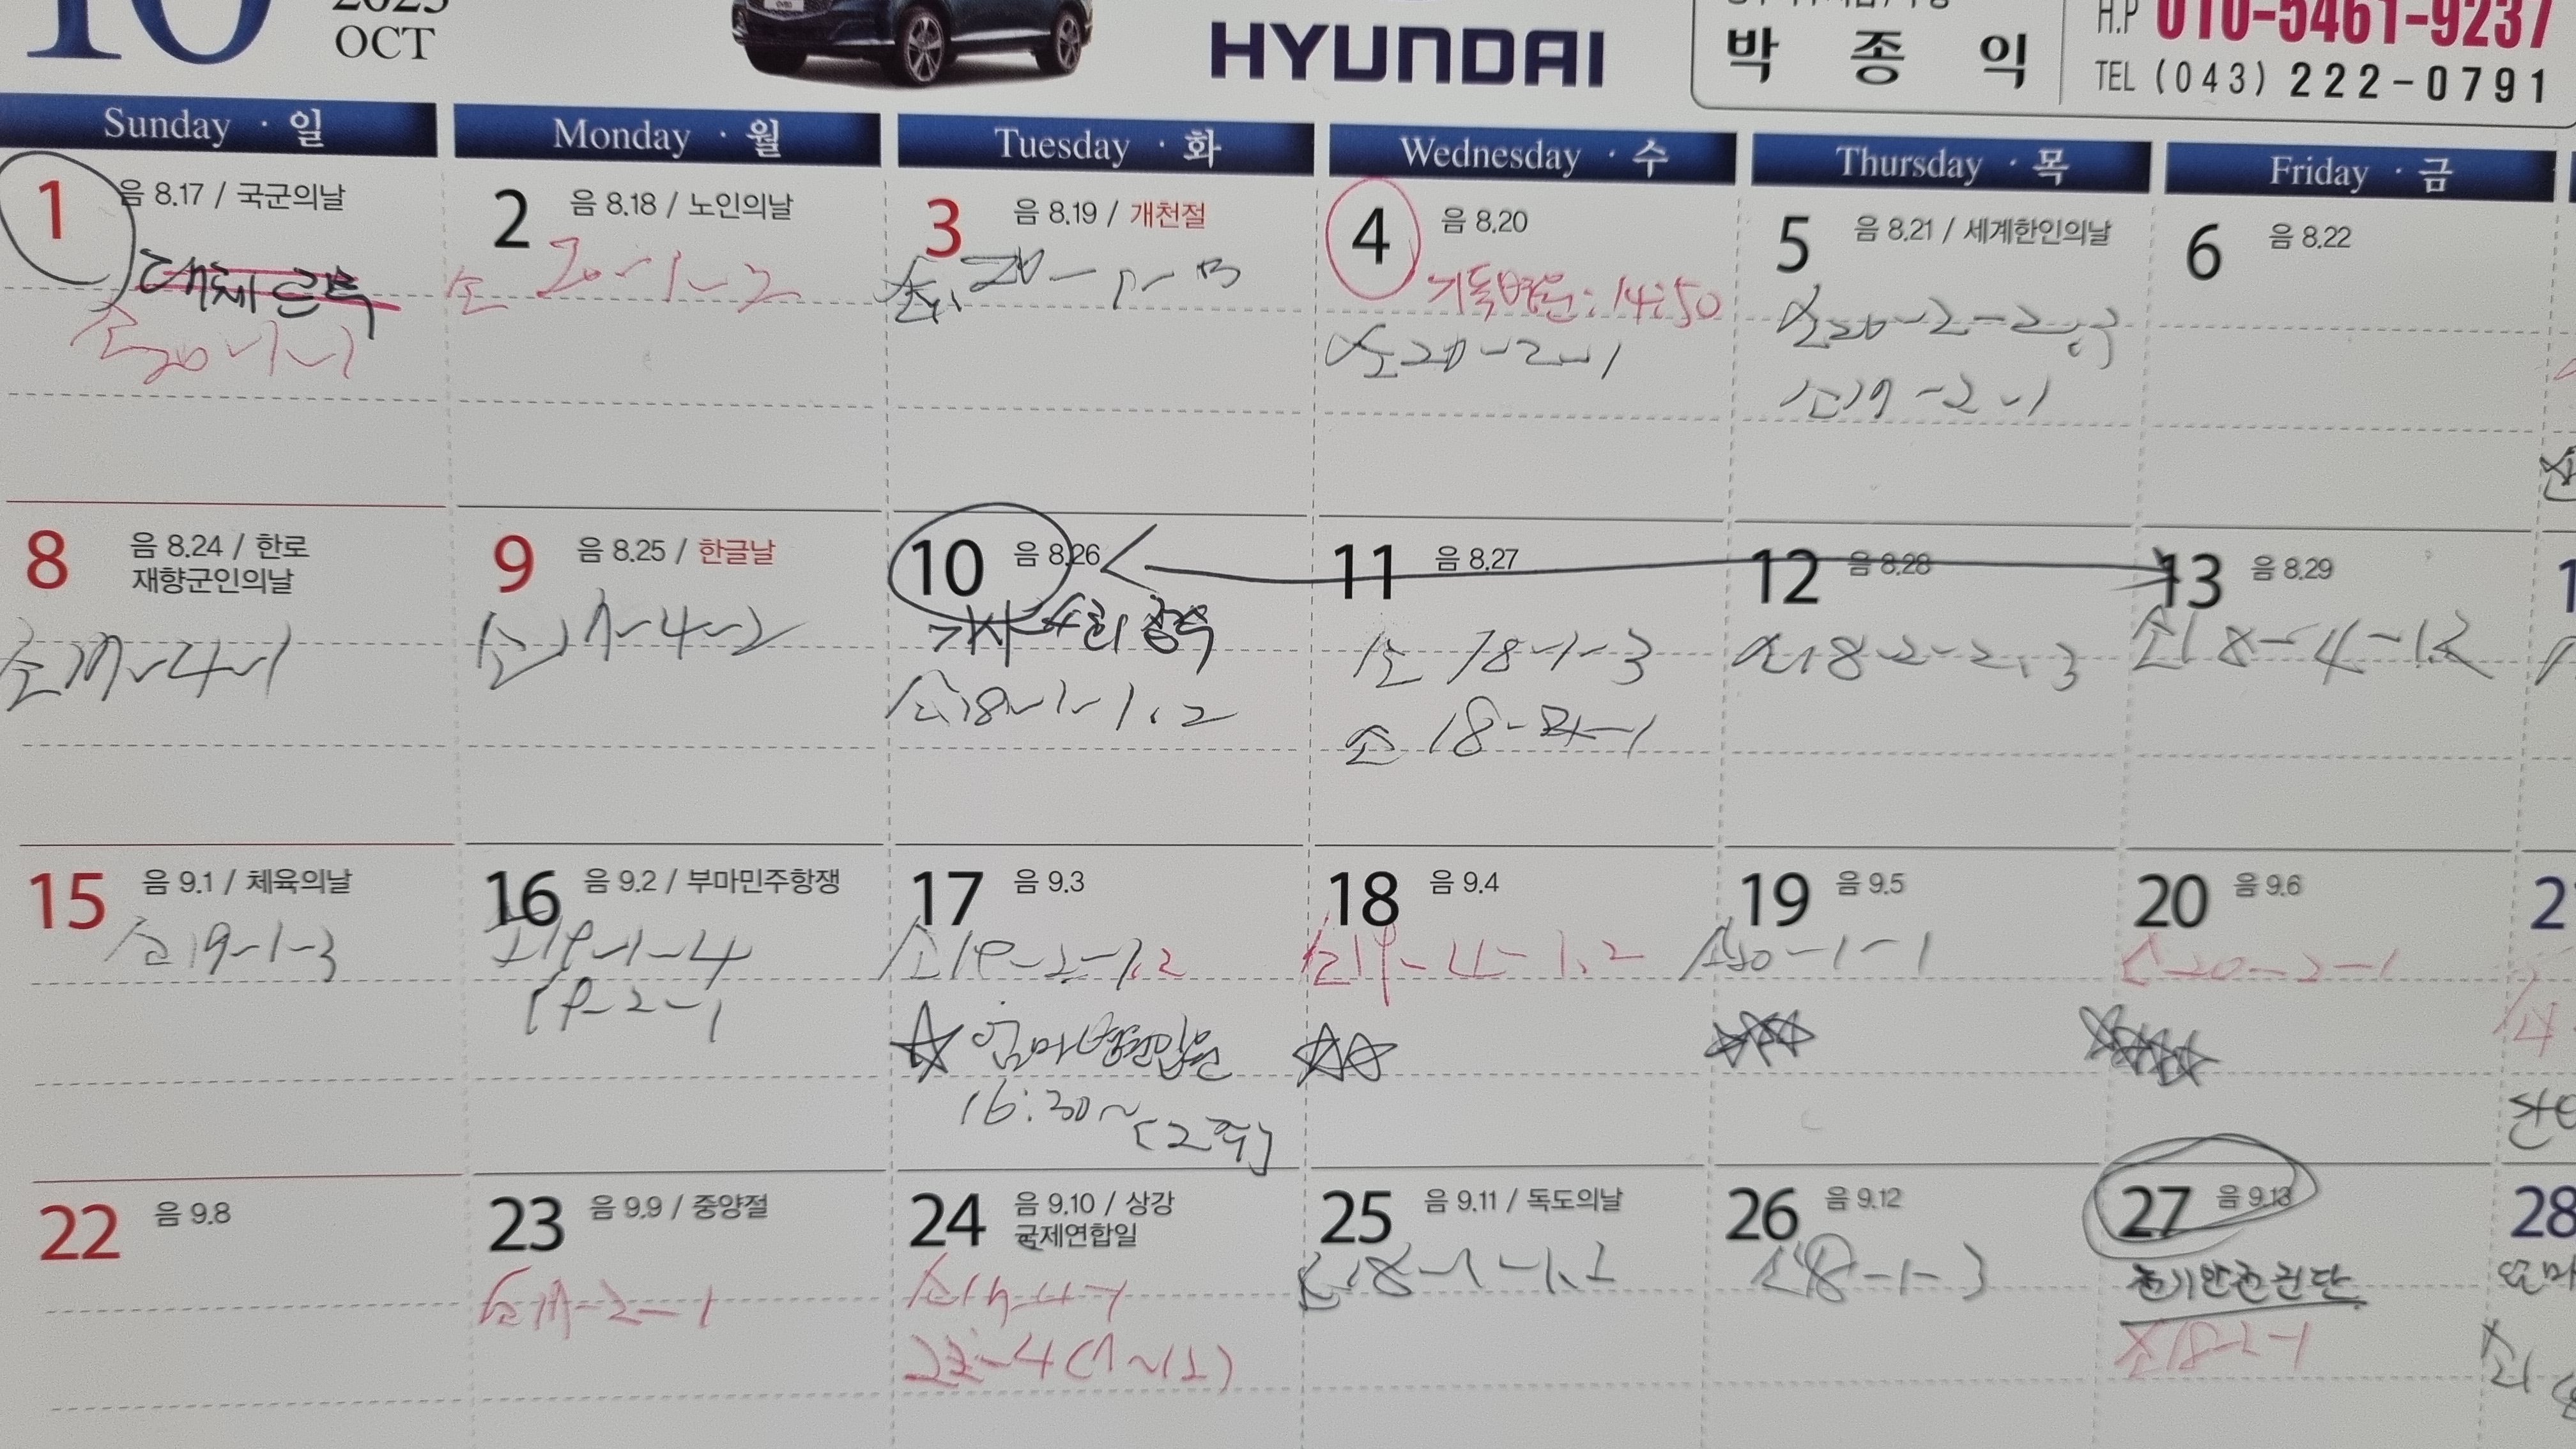 10
2023
OCT
HYUNDAI
박 종 익
H.P 010-5461-9237
TEL (043) 222-0791
Sunday · 일
Monday · 월
Tuesday · 화
Wednesday · 수
Thursday · 목
Friday · 금
1 음 8.17 / 국군의날
20-1-1
2 음 8.18 / 노인의날
소 20-1-2
3 음 8.19 / 개천절
4 음 8.20
기독병원: 14:50
소 20-2-1
5 음 8.21 / 세계한인의날
소 20-2-2,3
소 19-2-1
6 음 8.22
8 음 8.24 / 한로
재향군인의날
소 17-4-1
9 음 8.25 / 한글날
소 17-4-2
10 음 8.26
소 18-1-1.2
11 음 8.27
소 18-1-3
소 18-
-1
12 음 8.28
소 18-2-2,3
13 음 8.29
소 18-4-1.2
15 음 9.1 / 체육의날
소 19-1-3
16 음 9.2 / 부마민주항쟁
소 19-1-4
19-2-1
17 음 9.3
소 19-2-1.2
☆ 엄마병원입원
16:30~
[2주]
18 음 9.4
소 19-4-1.2
☆☆
19 음 9.5
소 20-1-1
☆☆☆
20 음 9.6
소 20-2-1
☆☆☆☆
22 음 9.8
23 음 9.9 / 중양절
소 17-2-1
24 음 9.10 / 상강
국제연합일
소 17-4-1
-4 (1~12)
25 음 9.11 / 독도의날
소 18-1-1.2
26 음 9.12
소 18-1-3
27 음 9.13
전기안전진단
소 18-2-1
28